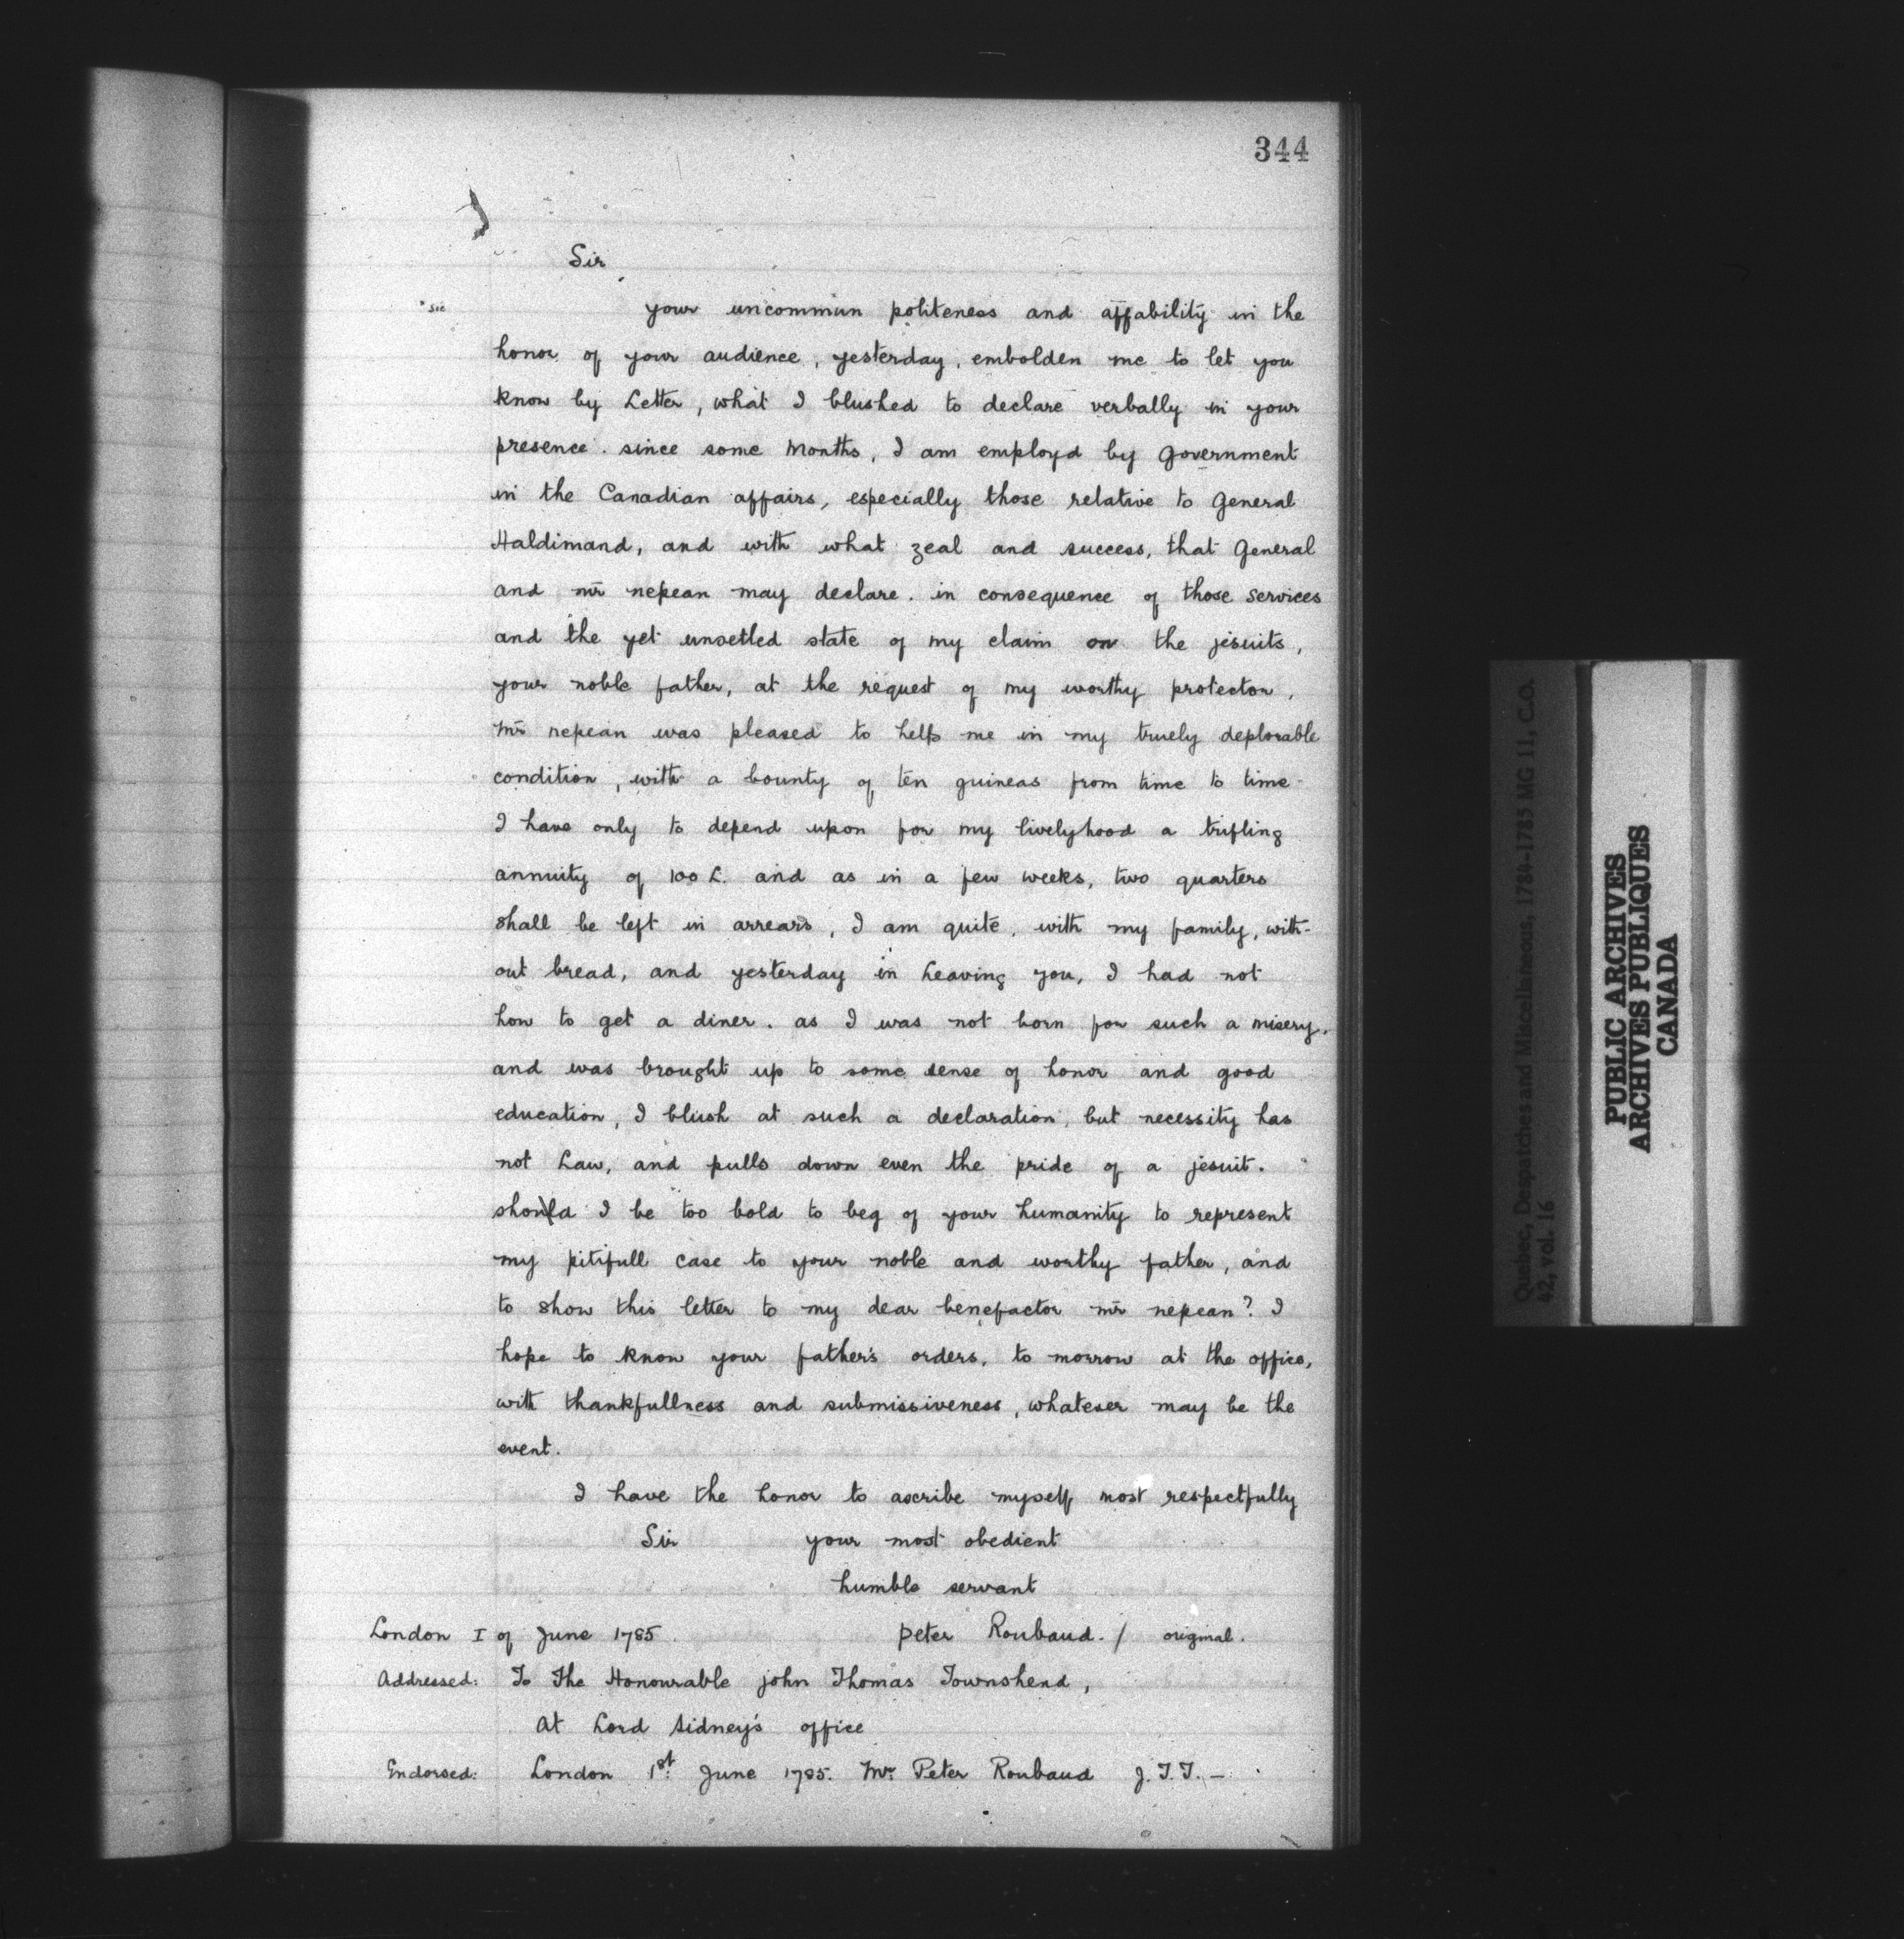 344
Sir
* sic
your uncommun politeness and affability in the
honor of your audience, yesterday, embolden me to let you
know by Letter, what I blushed to declare verbally in your
presence. since some Months, I am employd by government
in the Canadian affairs, especially those relative to general
Haldimand, and with what zeal and success, that General
and mr nepean may declare. in consequence of those services
and the yet unsetled state of my claim on the jesuits,
your noble father, at the request of my worthy protector,
Mr nepean was pleased to help me in my truely deplorable
condition, with a bounty of ten guineas from time to time
I have only to depend upon for my livelyhood a trifling
annuity of 100 L. and as in a few weeks, two quarters
shall be left in arrears, I am quite, with my family, with-
out bread, and yesterday in Leaving you, I had not
how to get a diner. as I was not born for such a misery,
and was brought up to some sense of honor and good
education, I blush at such a declaration, but necessity has
not Law, and pulls down even the pride of a jesuit.
should I be too bold to beg of your humanity to represent
my pitifull case to your noble and worthy father, and
to show this letter to my dear benefactor mr nepean? I
hope to know your father's orders, to morrow at the office,
with thankfullness and submissiveness, whatever may be the
event.
I have the honor to ascribe myself most respectfully
Sir your most obedient
humble servant
London I of June 1785. peter Roubaud. / original.
Addressed: To The Honourable john Thomas Townshend,
At Lord Sidney's office
Endorsed: London 1st June 1785. Mr Peter Roubaud J.T.T. –
Quebec, Despatches and Miscellaneous, 1784-1785 MG 11, C.O.
42, vol. 16
PUBLIC ARCHIVES
ARCHIVES PUBLIQUES
CANADA